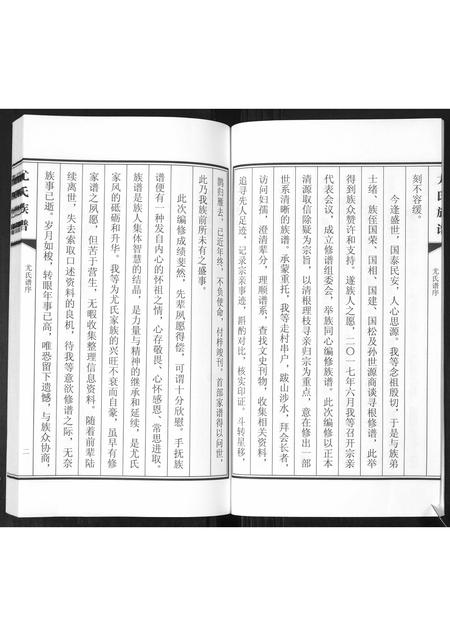 刻不容缓。
今逢盛世，国泰民安，人心思源。我等念祖殷切，于是与族弟
士绪、族侄国荣、国相、国建、国松及孙世源商谈寻根修谱，此举
得到族众赞许和支持。遂族人之愿，二〇一七年六月我等召开宗亲
代表会议，成立修谱组委会，举族同心编修族谱。此次编修以正本
清源取信除疑为宗旨，以清根理枝寻亲归宗为重点，意在修出一部
世系清晰的族谱。承蒙重托，我等走村串户，跋山涉水，拜会长者，
访问妇孺，澄清辈分，理顺谱系，查找文史刊物，收集相关资料，
追寻先人足迹，记录宗亲事迹，斟酌对比，核实印证。斗转星移，
鹊归雁去，已近年终，不负使命，付梓竣刊。首部家谱得以问世，
此乃我族前所未有之盛事。
此次编修成绩斐然，先辈夙愿得偿，可谓十分欣慰。手抚族
谱便有一种发自内心的怀祖之情，心存敬畏、心怀感恩、常思进取。
族谱是族人集体智慧的结晶，是力量与精神的继承和延续，是尤氏
家风的砥砺和升华。我等为尤氏家族的兴旺不衰而自豪。虽早有修
家谱之夙愿，但苦于营生，无暇收集整理信息资料。随着前辈陆
续离世，失去索取口述资料的良机，待我等意欲修谱之际，无奈
族事已逝。岁月如梭，转眼年事已高，唯恐留下遗憾，与族众协商，
尤氏族谱
尤氏谱序
尤氏族谱
尤氏谱序